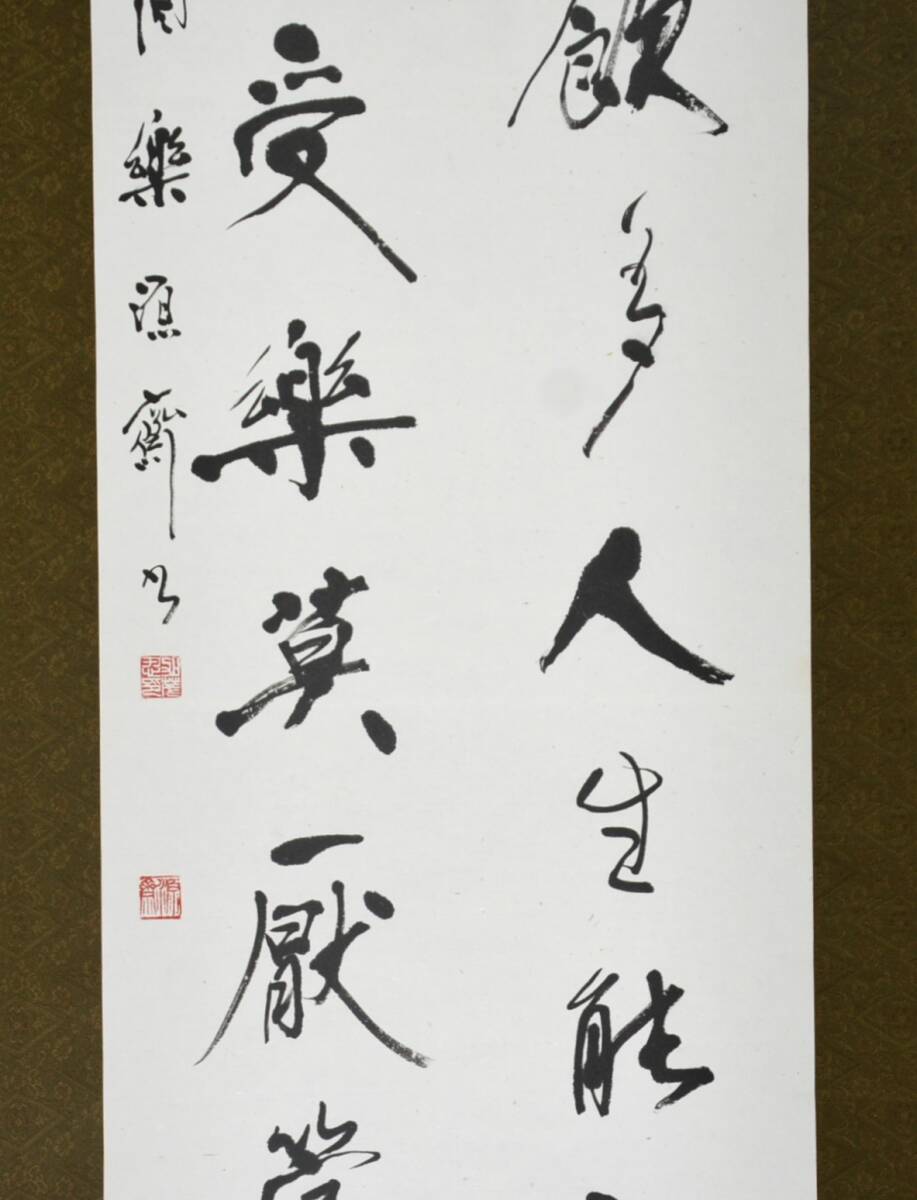 飲多人生能
受樂莫厭管
同樂源齋書